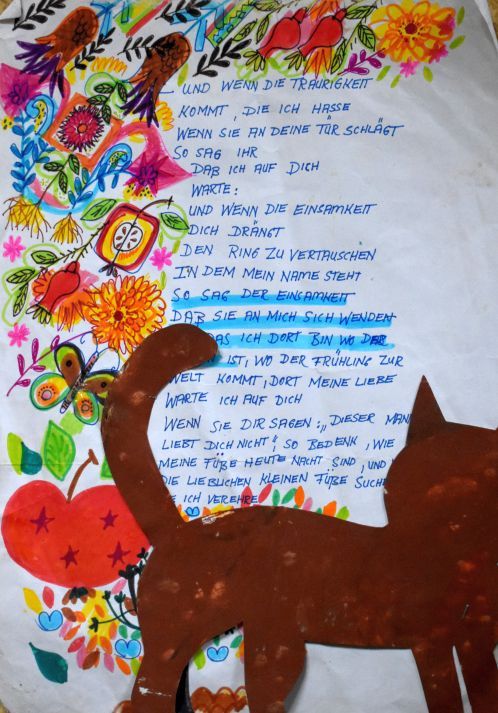 UND WENN DIE TRAURIGKEIT
KOMMT, DIE ICH HASSE
WENN SIE AN DEINE TÜR SCHLÄGT
SO SAG IHR
DAß ICH AUF DICH
WARTE:
UND WENN DIE EINSAMKEIT
DICH DRÄNGT
DEN RING ZU VERTAUSCHEN
IN DEM MEIN NAME STEHT
SO SAG DER EINSAMKEIT
DAß SIE AN MICH SICH WENDEN
ICH DORT BIN WO DER
IST, WO DER FRÜHLING ZUR
WELT KOMMT, DORT MEINE LIEBE
WARTE ICH AUF DICH
WENN SIE DIR SAGEN: „DIESER MAN
LIEBT DICH NICHT", SO BEDENK, WIE
MEINE FÜßE HEUTE NACHT SIND, UND
DIE LIEBLICHEN KLEINEN FÜßE SUCH
ICH VEREHRE